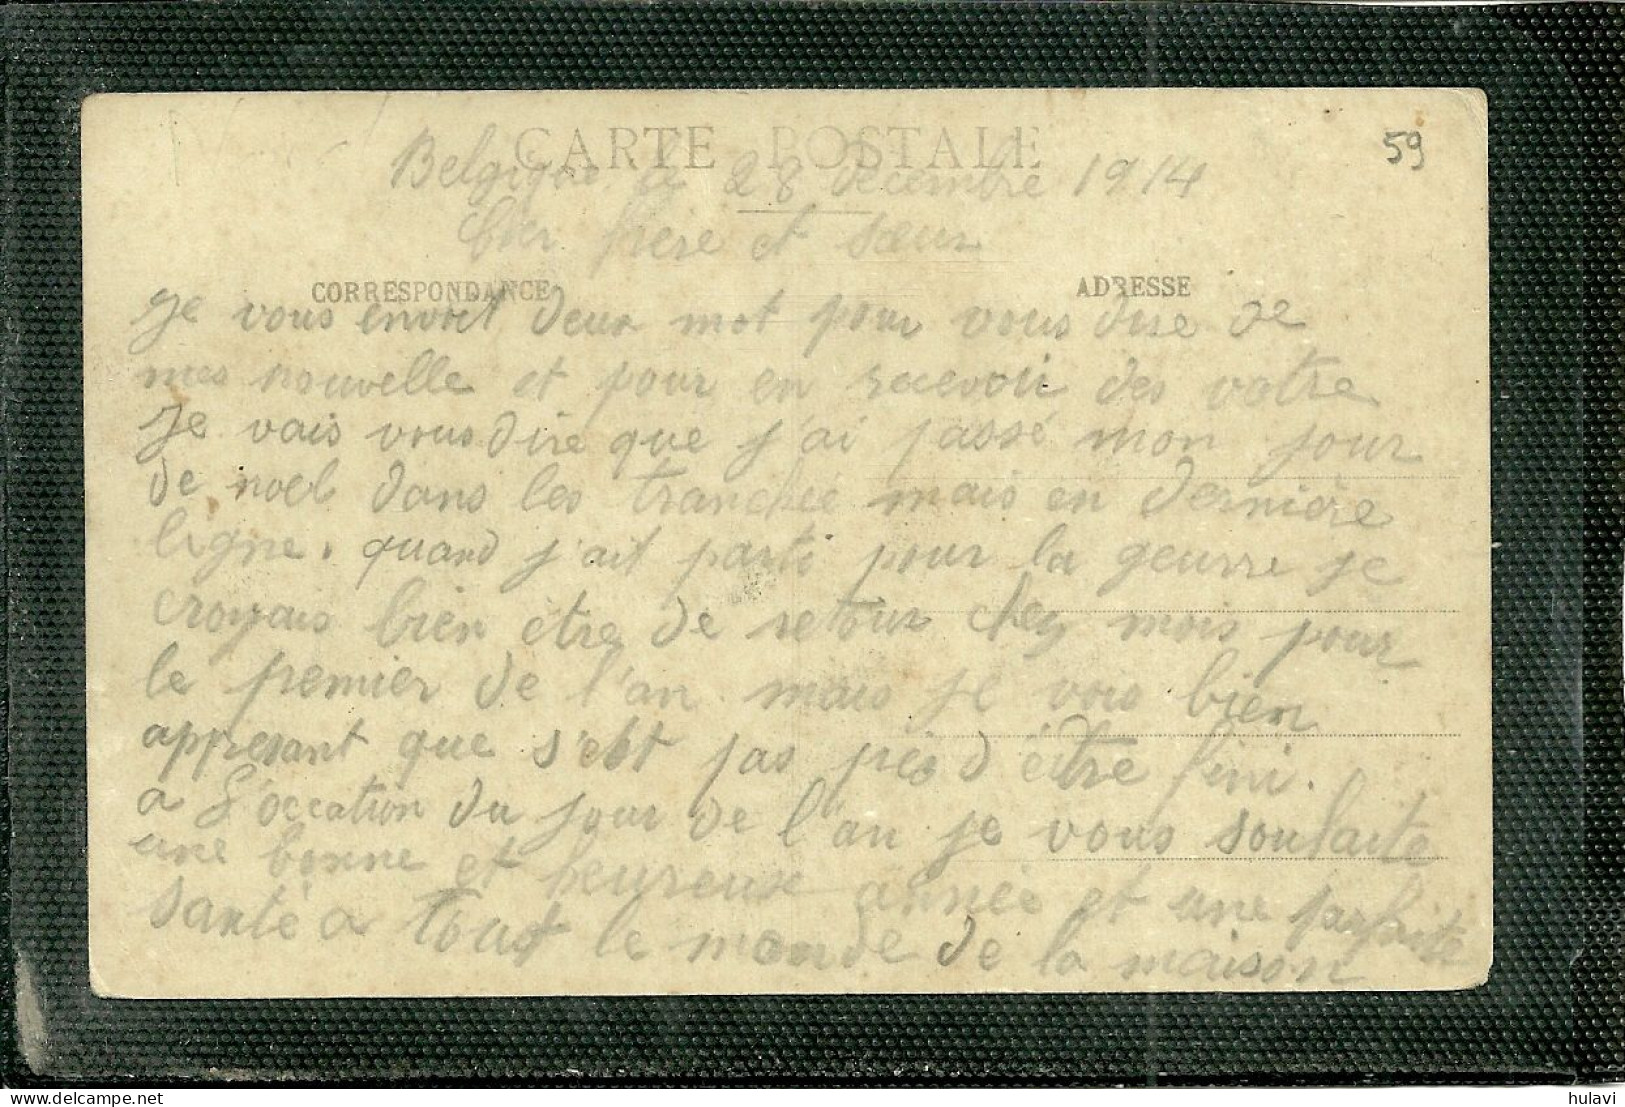 59
CARTE POSTALE
Belgique le 28 décembre 1914
Cher frere et sœur
CORRESPONDANCE
ADRESSE
Je vous envoit deux mot pour vous dire de
mes nouvelle et pour en recevoir des votre
Je vais vous dire que j'ai passé mon jour
de noel dans les tranchée mais en dernière
ligne. quand j'ait parti pour la geurre je
croyais bien être de retour chez mois pour
le premier de l'an mais je vois bien
appresant que s'ebt pas près d'être fini.
a l'occation du jour de l'an je vous souhaite
une bonne et heureuse année et une parfaite
santé a tout le monde de la maison
hulavi